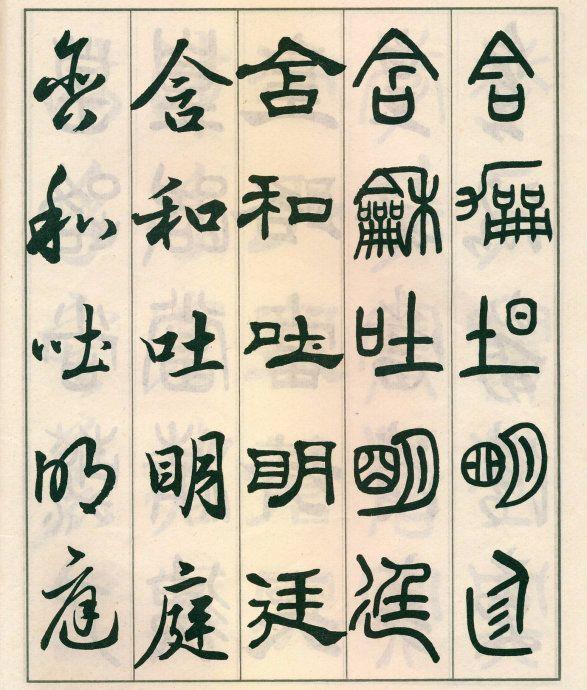 含和吐明庭
含龢吐明庭
含和吐明庭
含和吐明庭
含和吐明庭